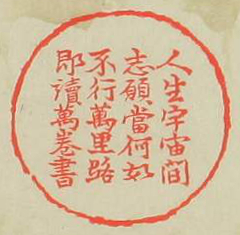 人生宇宙間
志願當何如
不行萬里路
即讀萬卷書